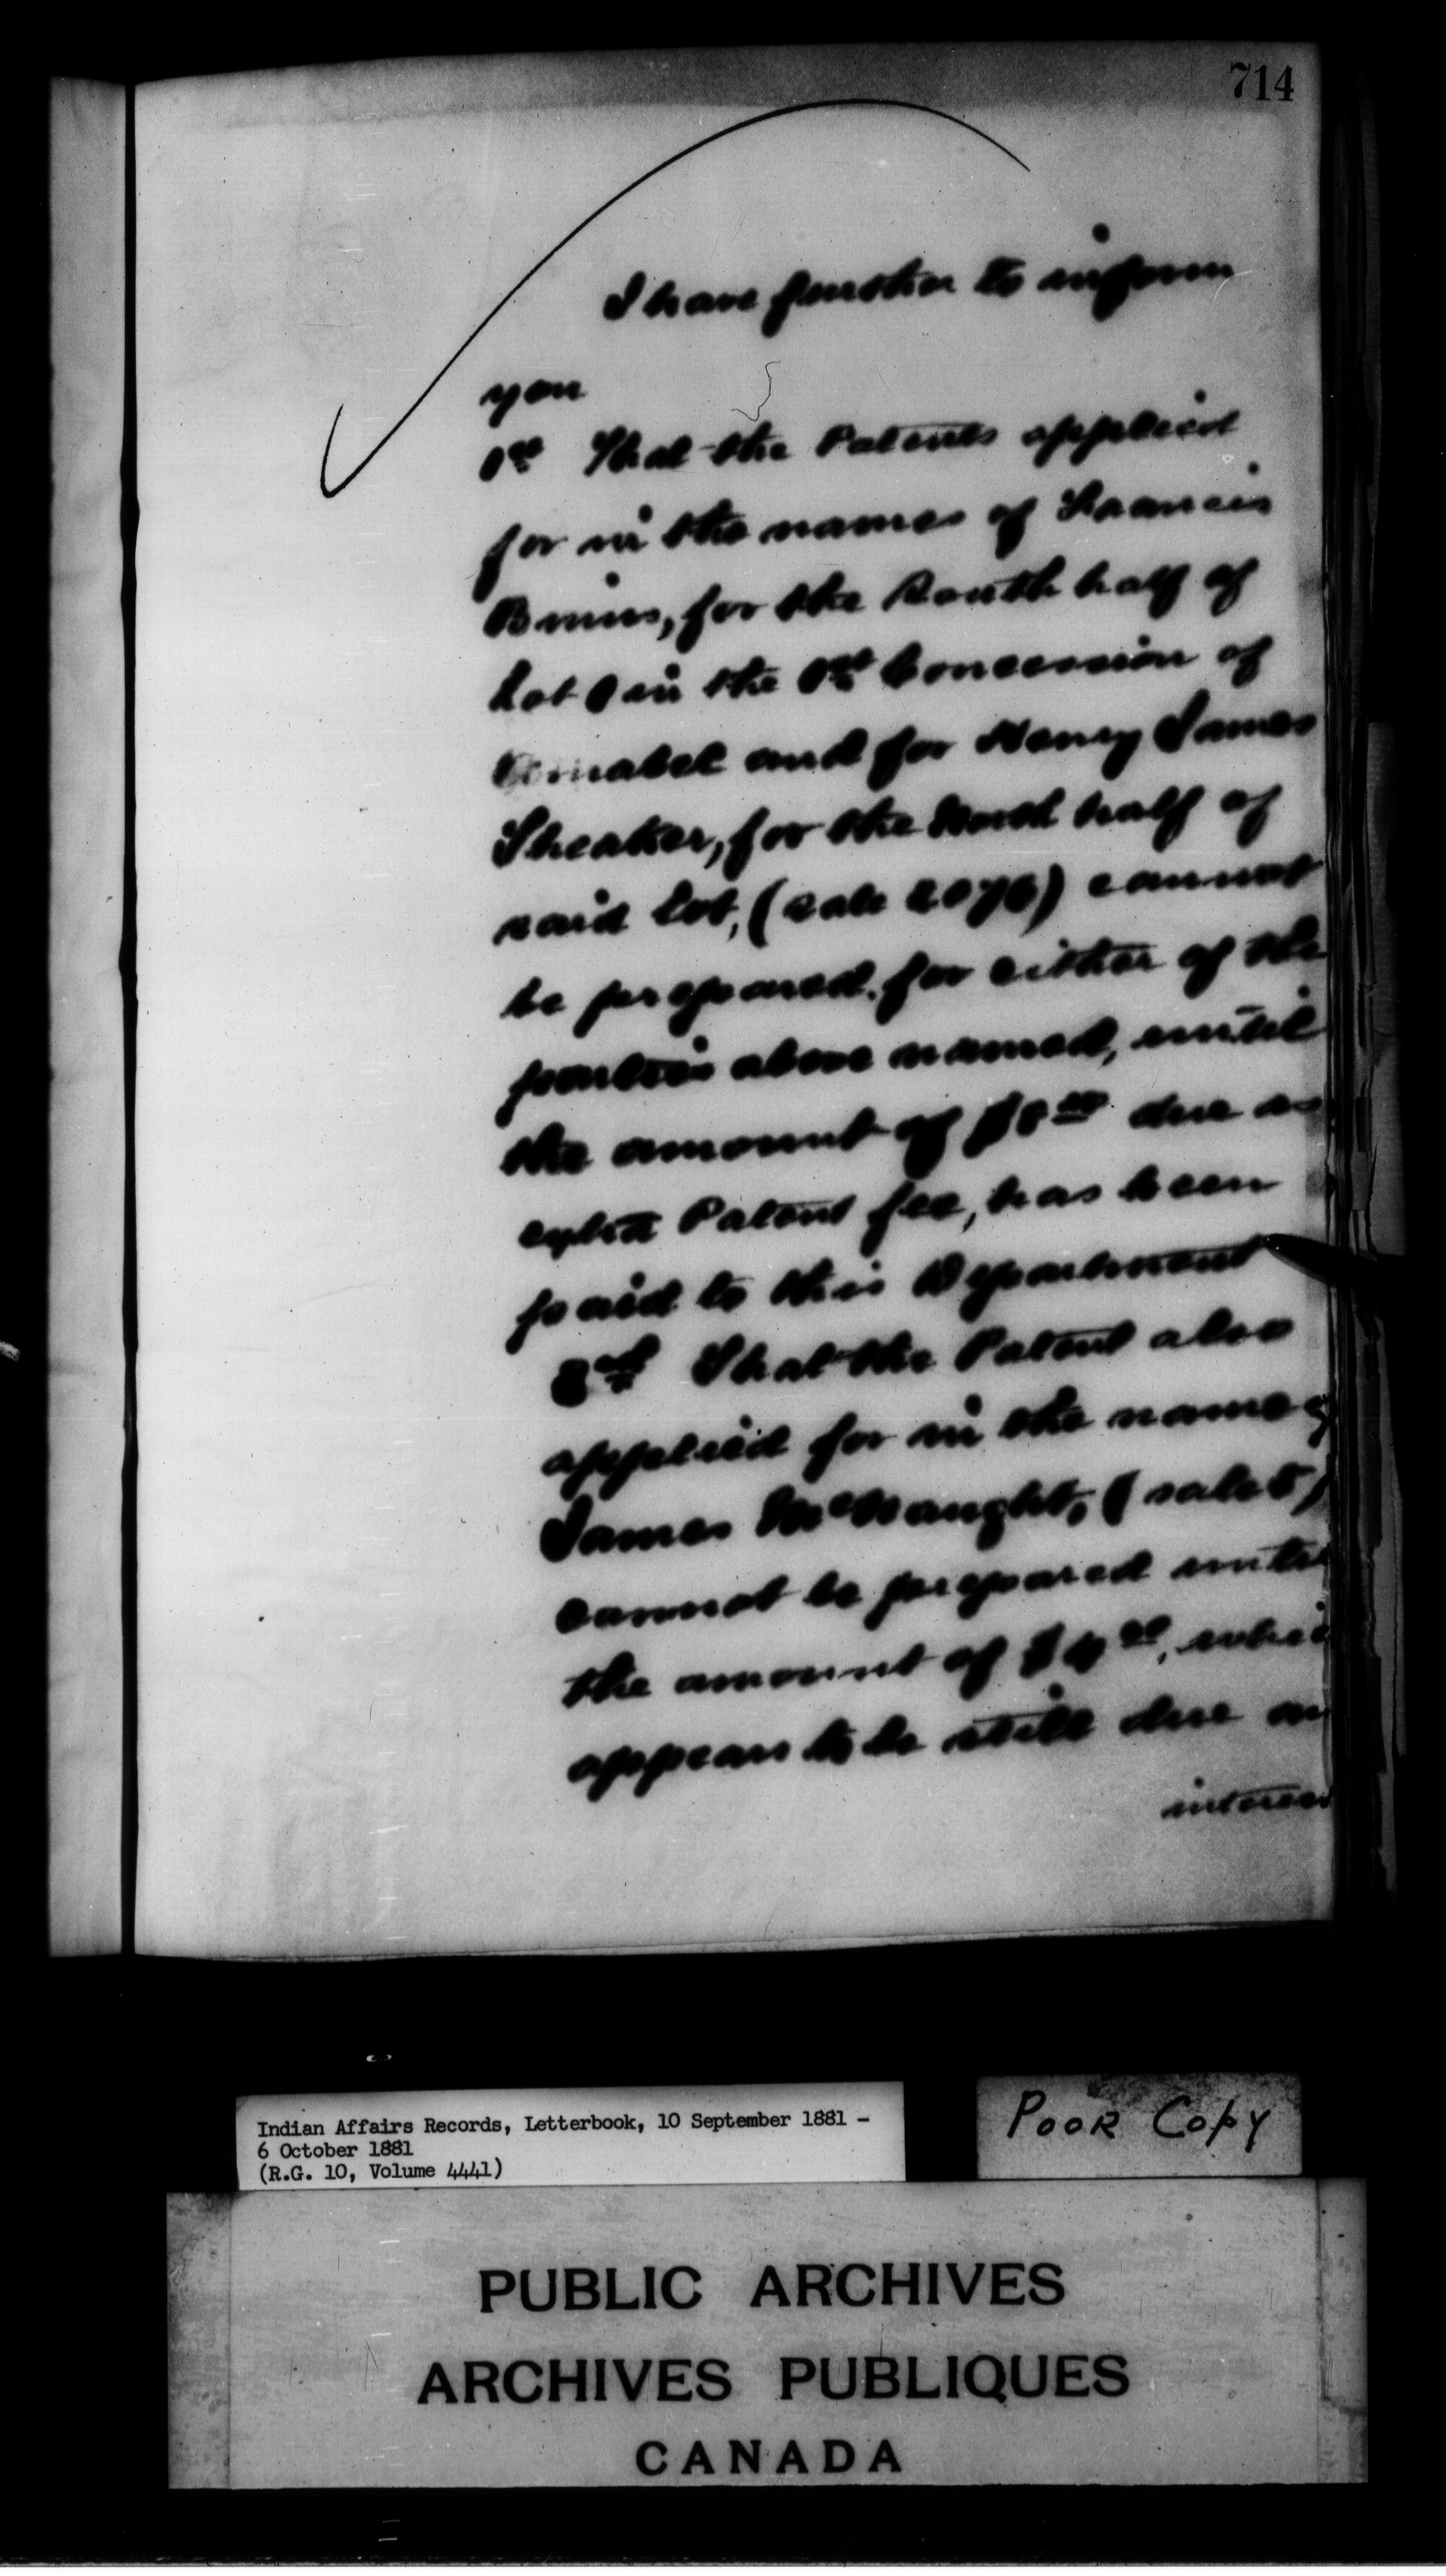 714
I have further to inform
you
1st That the Patents applied
for in the names of Francis
Binns, for the South half of
Lot 1 in the 1st Concession of
Amabel and for Henry James
Sheaker, for the North half of
said Lot, (sale 2076) cannot
be prepared for either of the
parties above named, until
the amount of $1 00 due as
extra Patent fee, has been
paid to this Department
2nd That the Patent also
applied for in the name of
James McNaught, (sale 5)
cannot be prepared until
the amount of $4 00, which
appears to be still due on
interest
Indian Affairs Records, Letterbook, 10 September 1881 -
6 October 1881
(R.G. 10, Volume 4441)
Poor Copy
PUBLIC ARCHIVES
ARCHIVES PUBLIQUES
CANADA